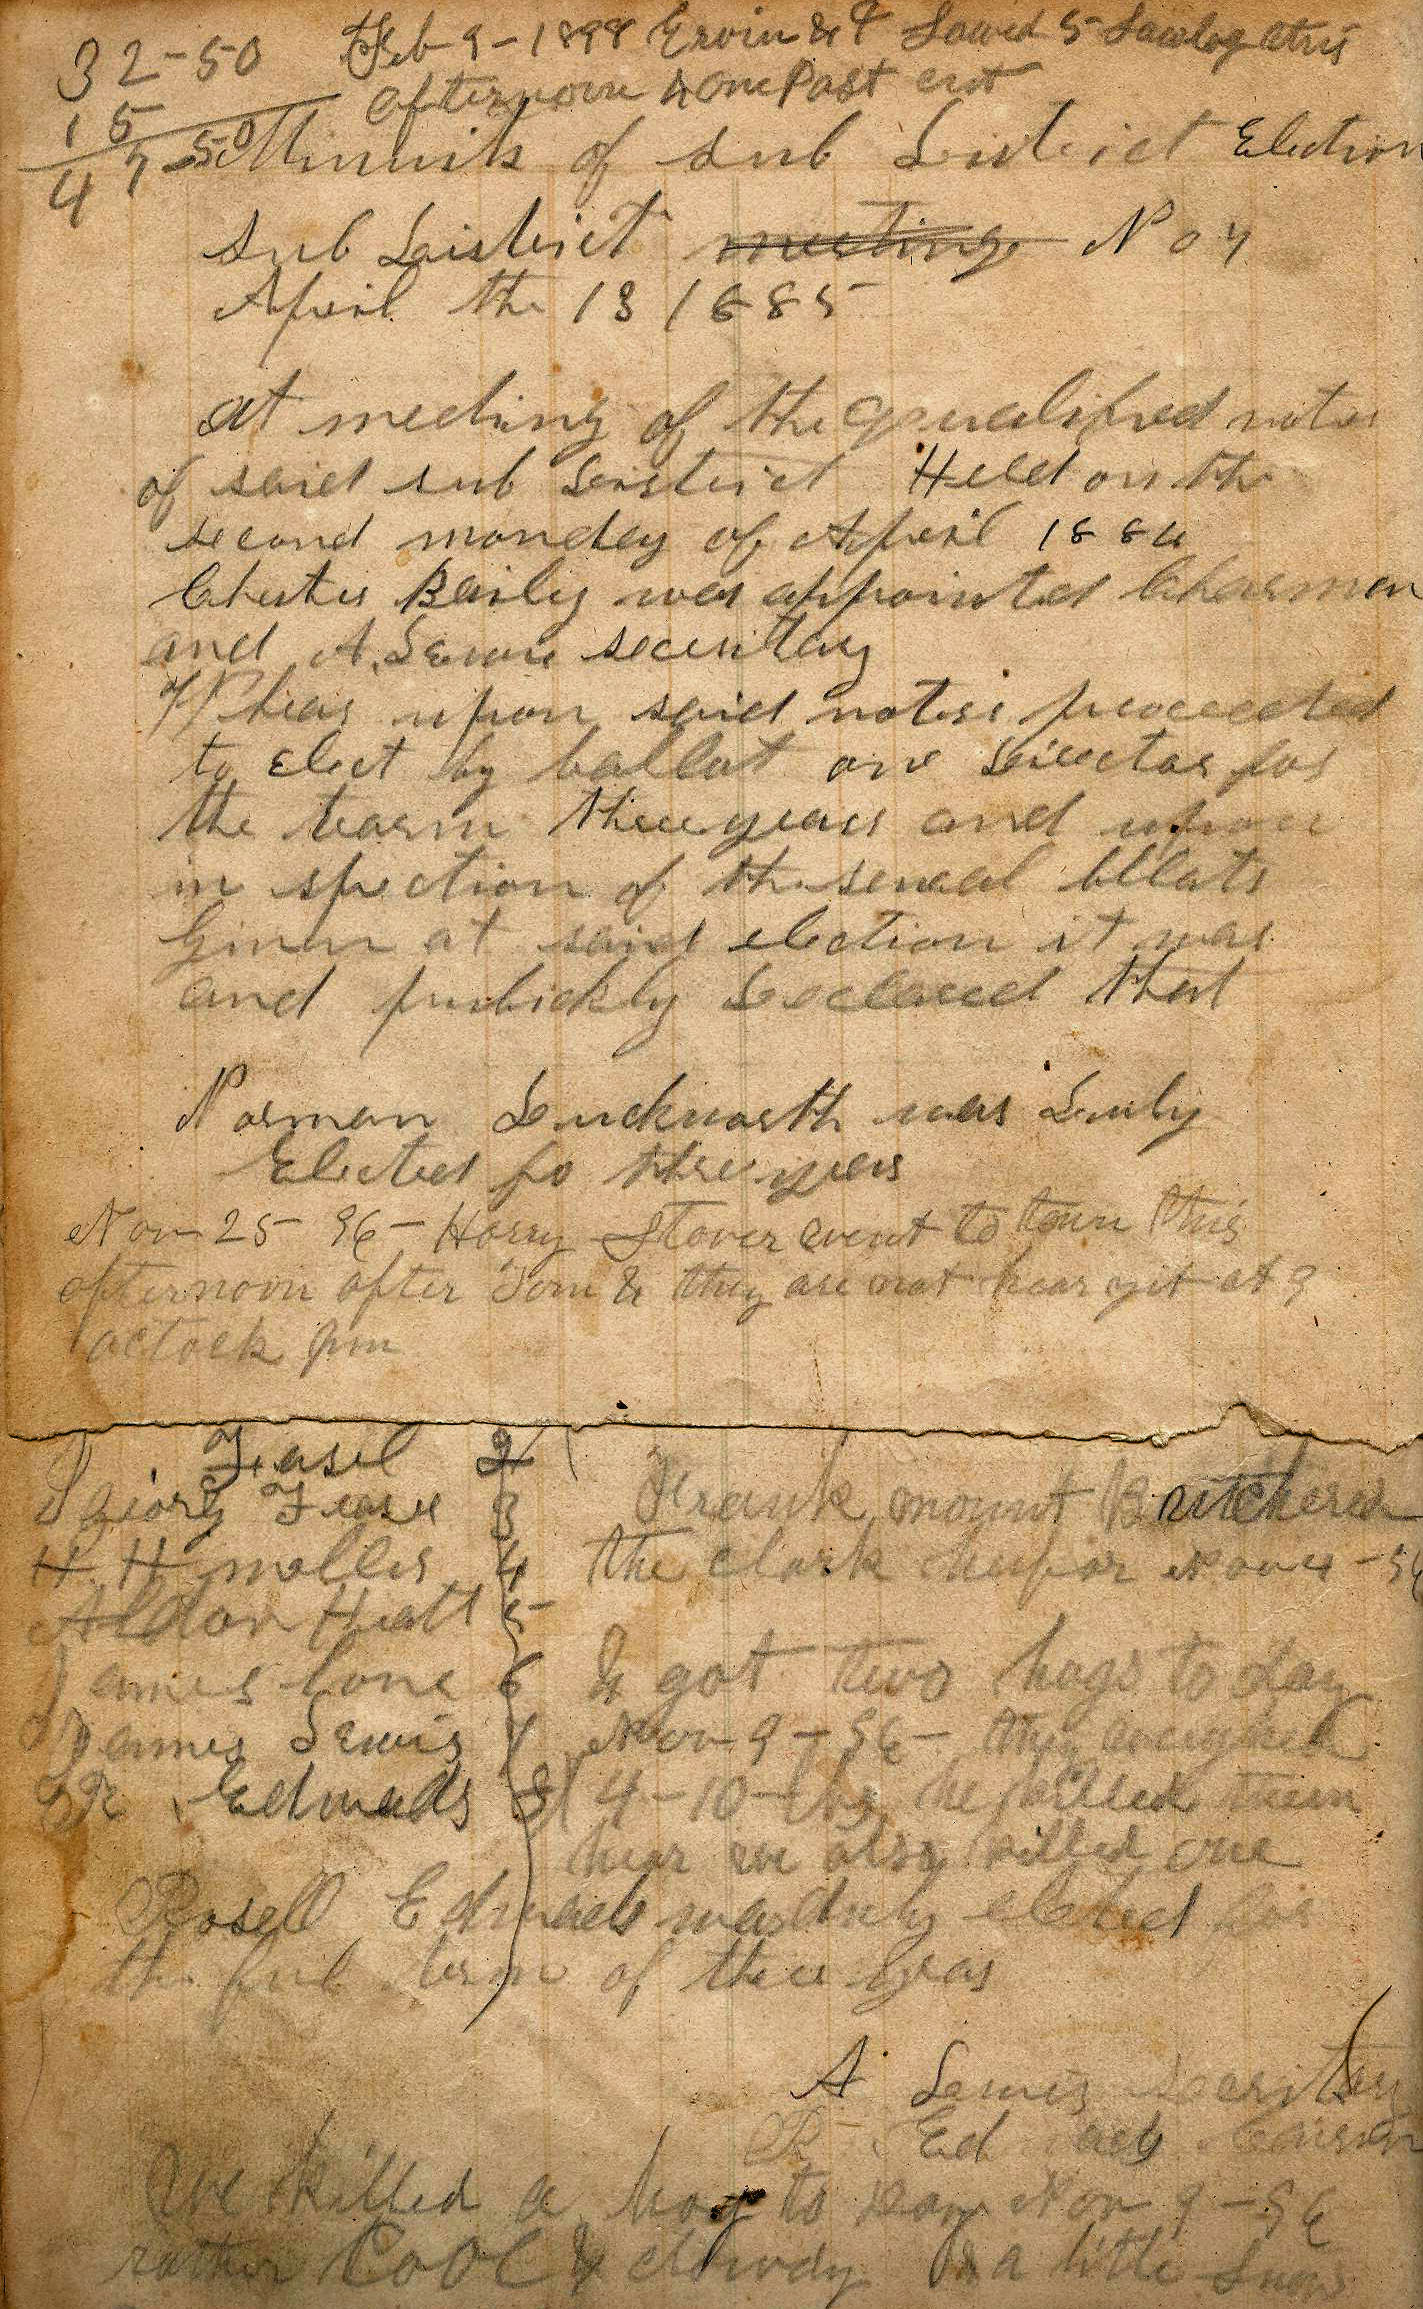 32-50 Feb 9-1898 Ervin & I Sawed 5 Sawlog
15 afternoon & one Post cut
47-50 Minuits of sub District Election
sub District meeting No 4
April the 13 1885
at meeting of the qualified voters
of said sub District Held on the
second monday of April 188
Baily was appointed Charman
and A. Lewis secritary
Whear upon said voters proceeded
to elect by ballot one Director for
the tearm three years and upon
in spection of the several bllats
Givin at said election it was
and publickly Declared that
Norman Duckworth was Duly
Elected fo three years
Nov 25 96 - Harry Stover went to town this
afternoon after Tom & they are not hear yit at 9
oclock pm
Feasel 2
Georg Fease 3 Frank mount Butchered
H. H. moller 4 the Clark heifor Nov 4 - 96
Aldon Hiatt 5
James Cone 6 & got two hogs to day
James Lewis 7 Nov 9 - 96 - they weighed
R Edwads 8 4-10-lbs he killed them
hear we also killed one
Rosell Edwads was duly elected for
the full term of three years
A Lewis Secritary
R Edwads
we killed a hog to day Nov 9 - 96
rather Cool & clowdy & a little Snow